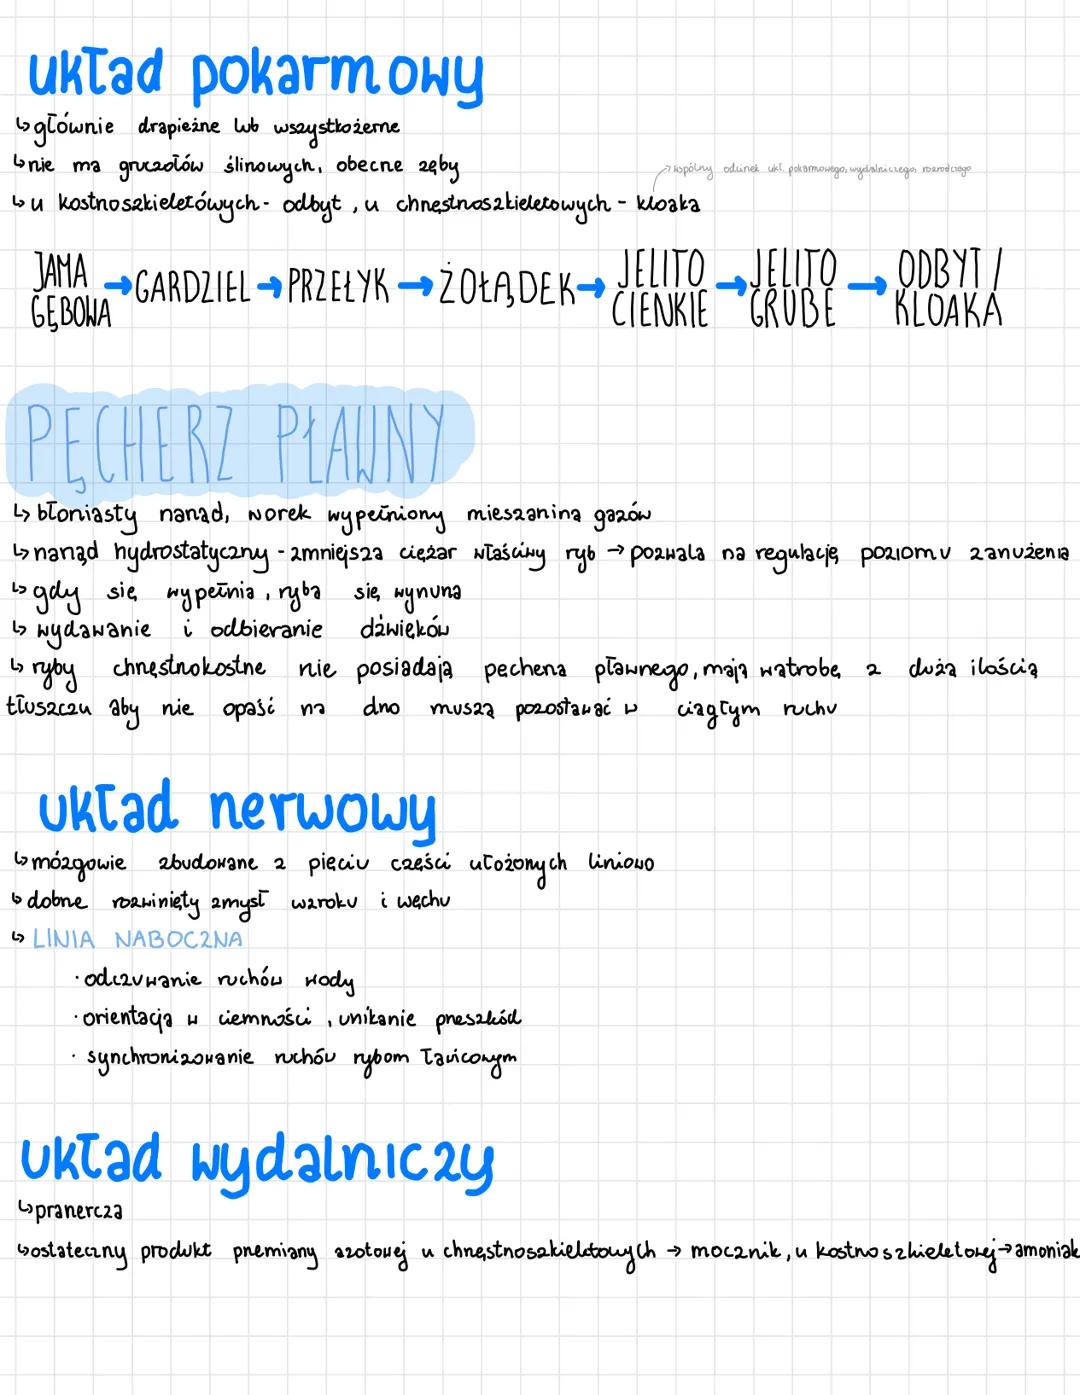 układ pokarmowy
↳ głównie drapieżne lub wszystkożerne
↳ nie ma gruczołów ślinowych, obecne zęby
→ wspólny odcinek ukł. pokarmowego, wydalniczego, rozrodczego
↳ u kostnoszkieletówych - odbyt, u chrzęstnoszkieletowych - kloaka
JAMA GĘBOWA → GARDZIEL → PRZEŁYK → ŻOŁĄDEK → JELITO CIENKIE → JELITO GRUBE → ODBYT / KLOAKA
PĘCHERZ PŁAWNY
↳ błoniasty narząd, worek wypełniony mieszaniną gazów
↳ narząd hydrostatyczny - zmniejsza ciężar właściwy ryb → pozwala na regulację poziomu zanurzenia
↳ gdy się wypełnia, ryba się wynurza
↳ wydawanie i odbieranie dźwięków
↳ ryby chrzęstnokostne nie posiadają pęcherza pławnego, mają wątrobę z dużą ilością
tłuszczu aby nie opaść na dno muszą pozostawać w ciągłym ruchu
układ nerwowy
↳ mózgowie zbudowane z pięciu części ułożonych liniowo
↳ dobrze rozwinięty zmysł wzroku i węchu
↳ LINIA NABOCZNA
· odczuwanie ruchów wody
· orientacja w ciemności, unikanie przeszkód
· synchronizowanie ruchów rybom ławicowym
układ wydalniczy
↳ pranercza
↳ ostateczny produkt przemiany azotowej u chrzęstnoszkieletowych → mocznik, u kostnoszkieletowej → amoniak